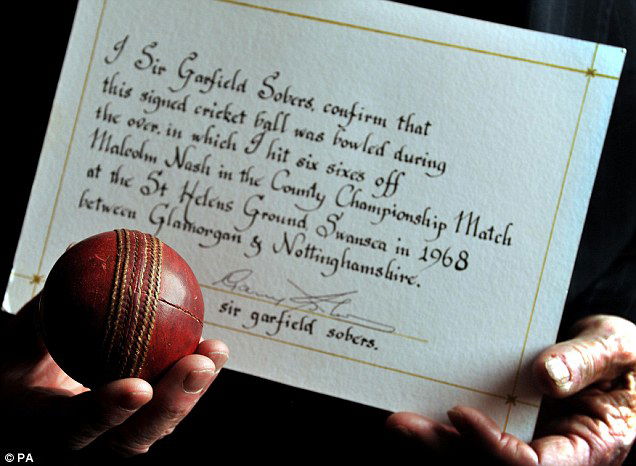 I Sir Garfield Sobers, confirm that
this signed cricket ball was bowled during
the over, in which I hit six sixes off
Malcolm Nash in the County Championship Match
at the St Helens Ground Swansea in 1968
between Glamorgan & Nottinghamshire.
sir garfield sobers.
© PA